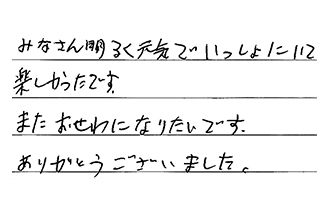 みなさん明るく元気でいっしょにいて
楽しかったです.
またおせわになりたいです.
ありがとうございました。